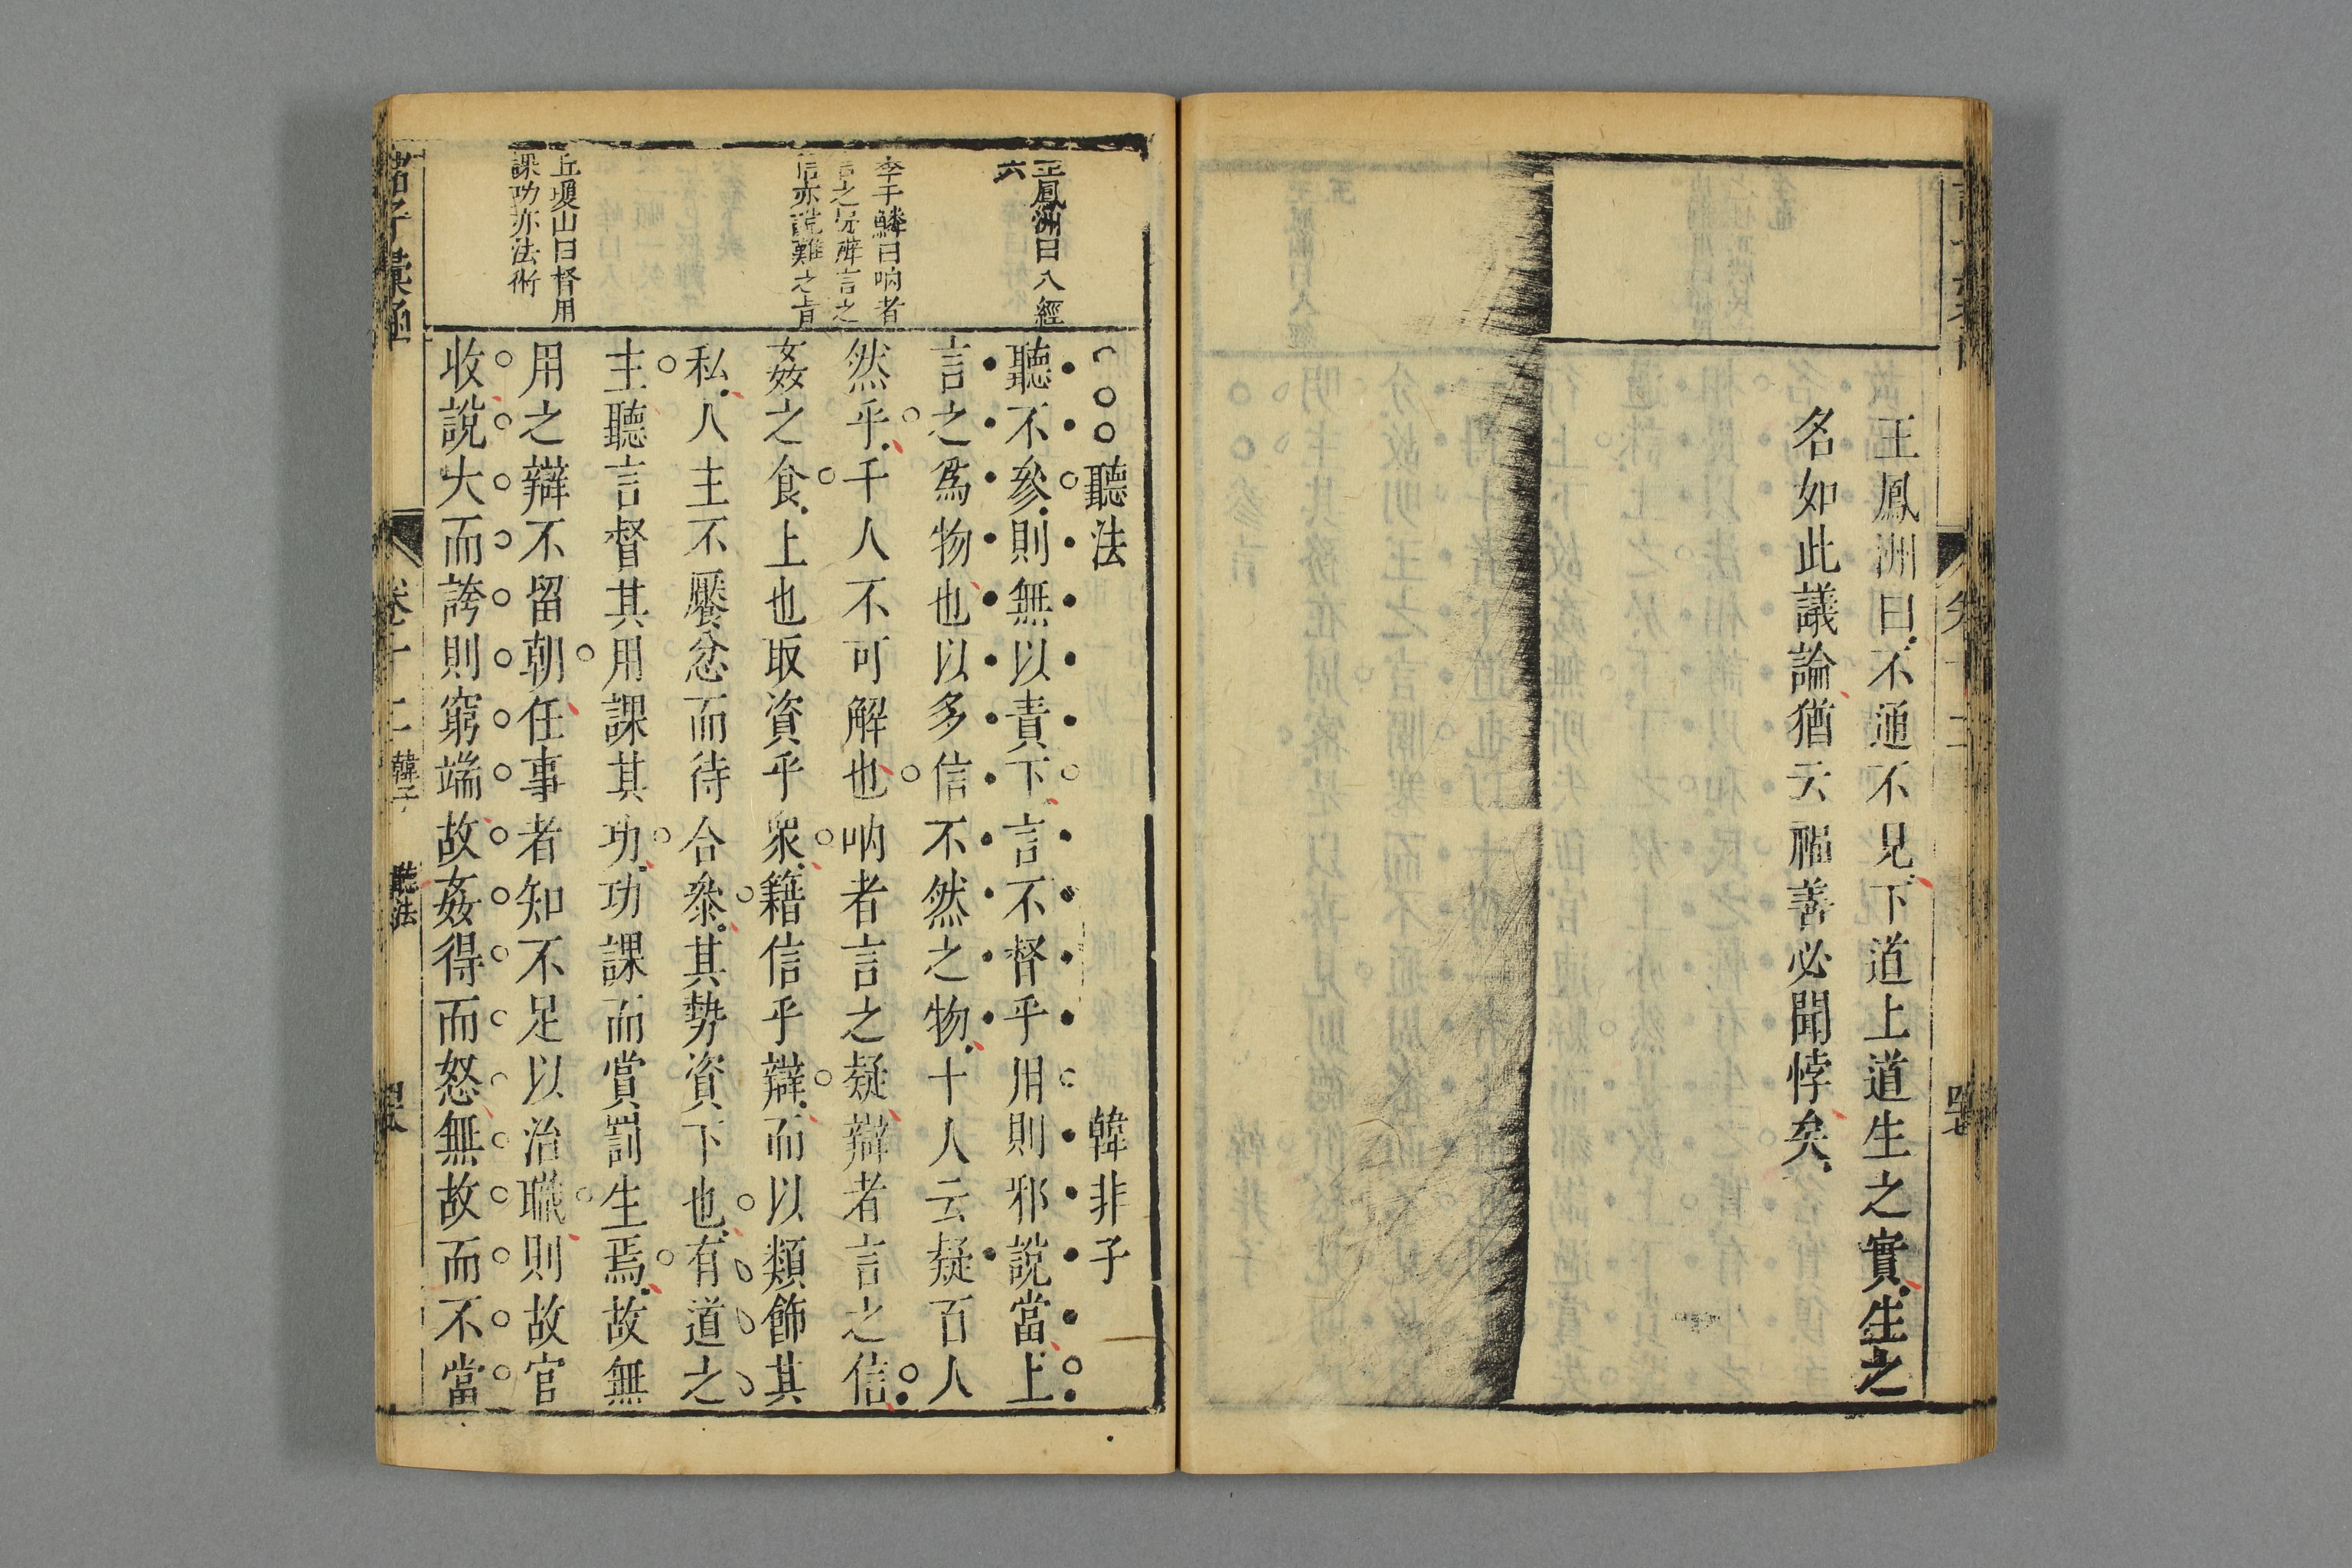 王鳳洲曰不通不見下道上道生之實生之
名如此議論猶云福善必聞悖矣
聽法 韓非子
王鳳洲曰八經
六
聽不參則無以責下言不督乎用則邪說當上
言之爲物也以多信不然之物十人云疑百人
李于鱗曰吶者
言之疑辯言之
信亦說難之旨
然乎千人不可解也吶者言之疑辯者言之信
姦之食上也取資乎衆籍信乎辯而以類飾其
私人主不饜忿而待合參其勢資下也有道之
主聽言督其用課其功功課而賞罰生焉故無
丘瓊山曰督用
課功亦法術
用之辯不留朝任事者知不足以治職則故官
收說大而誇則窮端故姦得而怒無故而不當
諸子彙函
卷十二 韓子 聽法